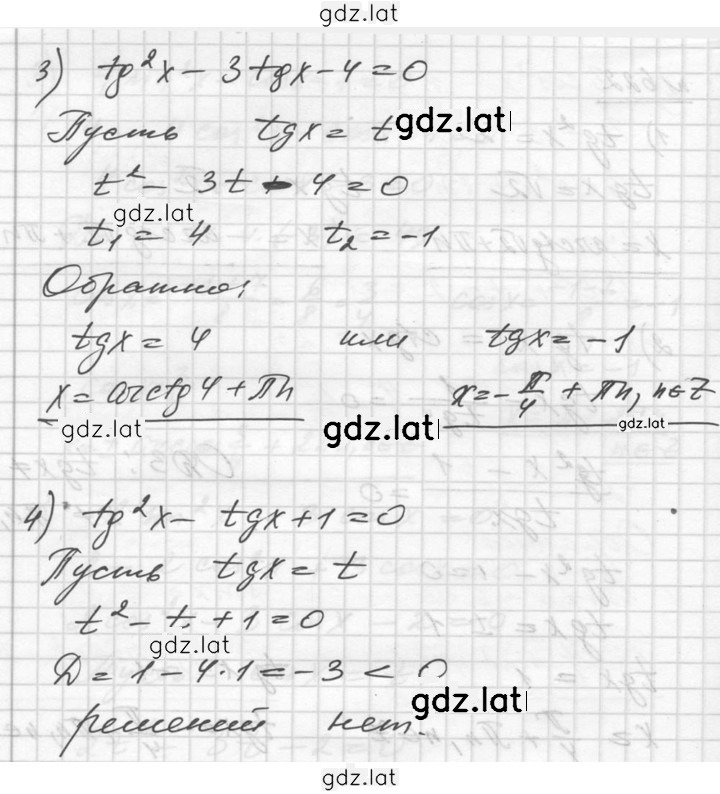 gdz.lat
3) tg²x - 3tgx - 4 = 0
Пусть tgx = t gdz.lat
t² - 3t - 4 = 0
gdz.lat
t₁ = 4 t₂ = -1
Обратно:
tgx = 4 или tgx = -1
x = arctg4 + πn x = -π/4 + πn, n∈Z
gdz.lat gdz.lat gdz.lat
4) tg²x - tgx + 1 = 0
Пусть tgx = t
t² - t + 1 = 0
gdz.lat
D = 1 - 4·1 = -3 < 0
gdz.lat
решений нет.
gdz.lat